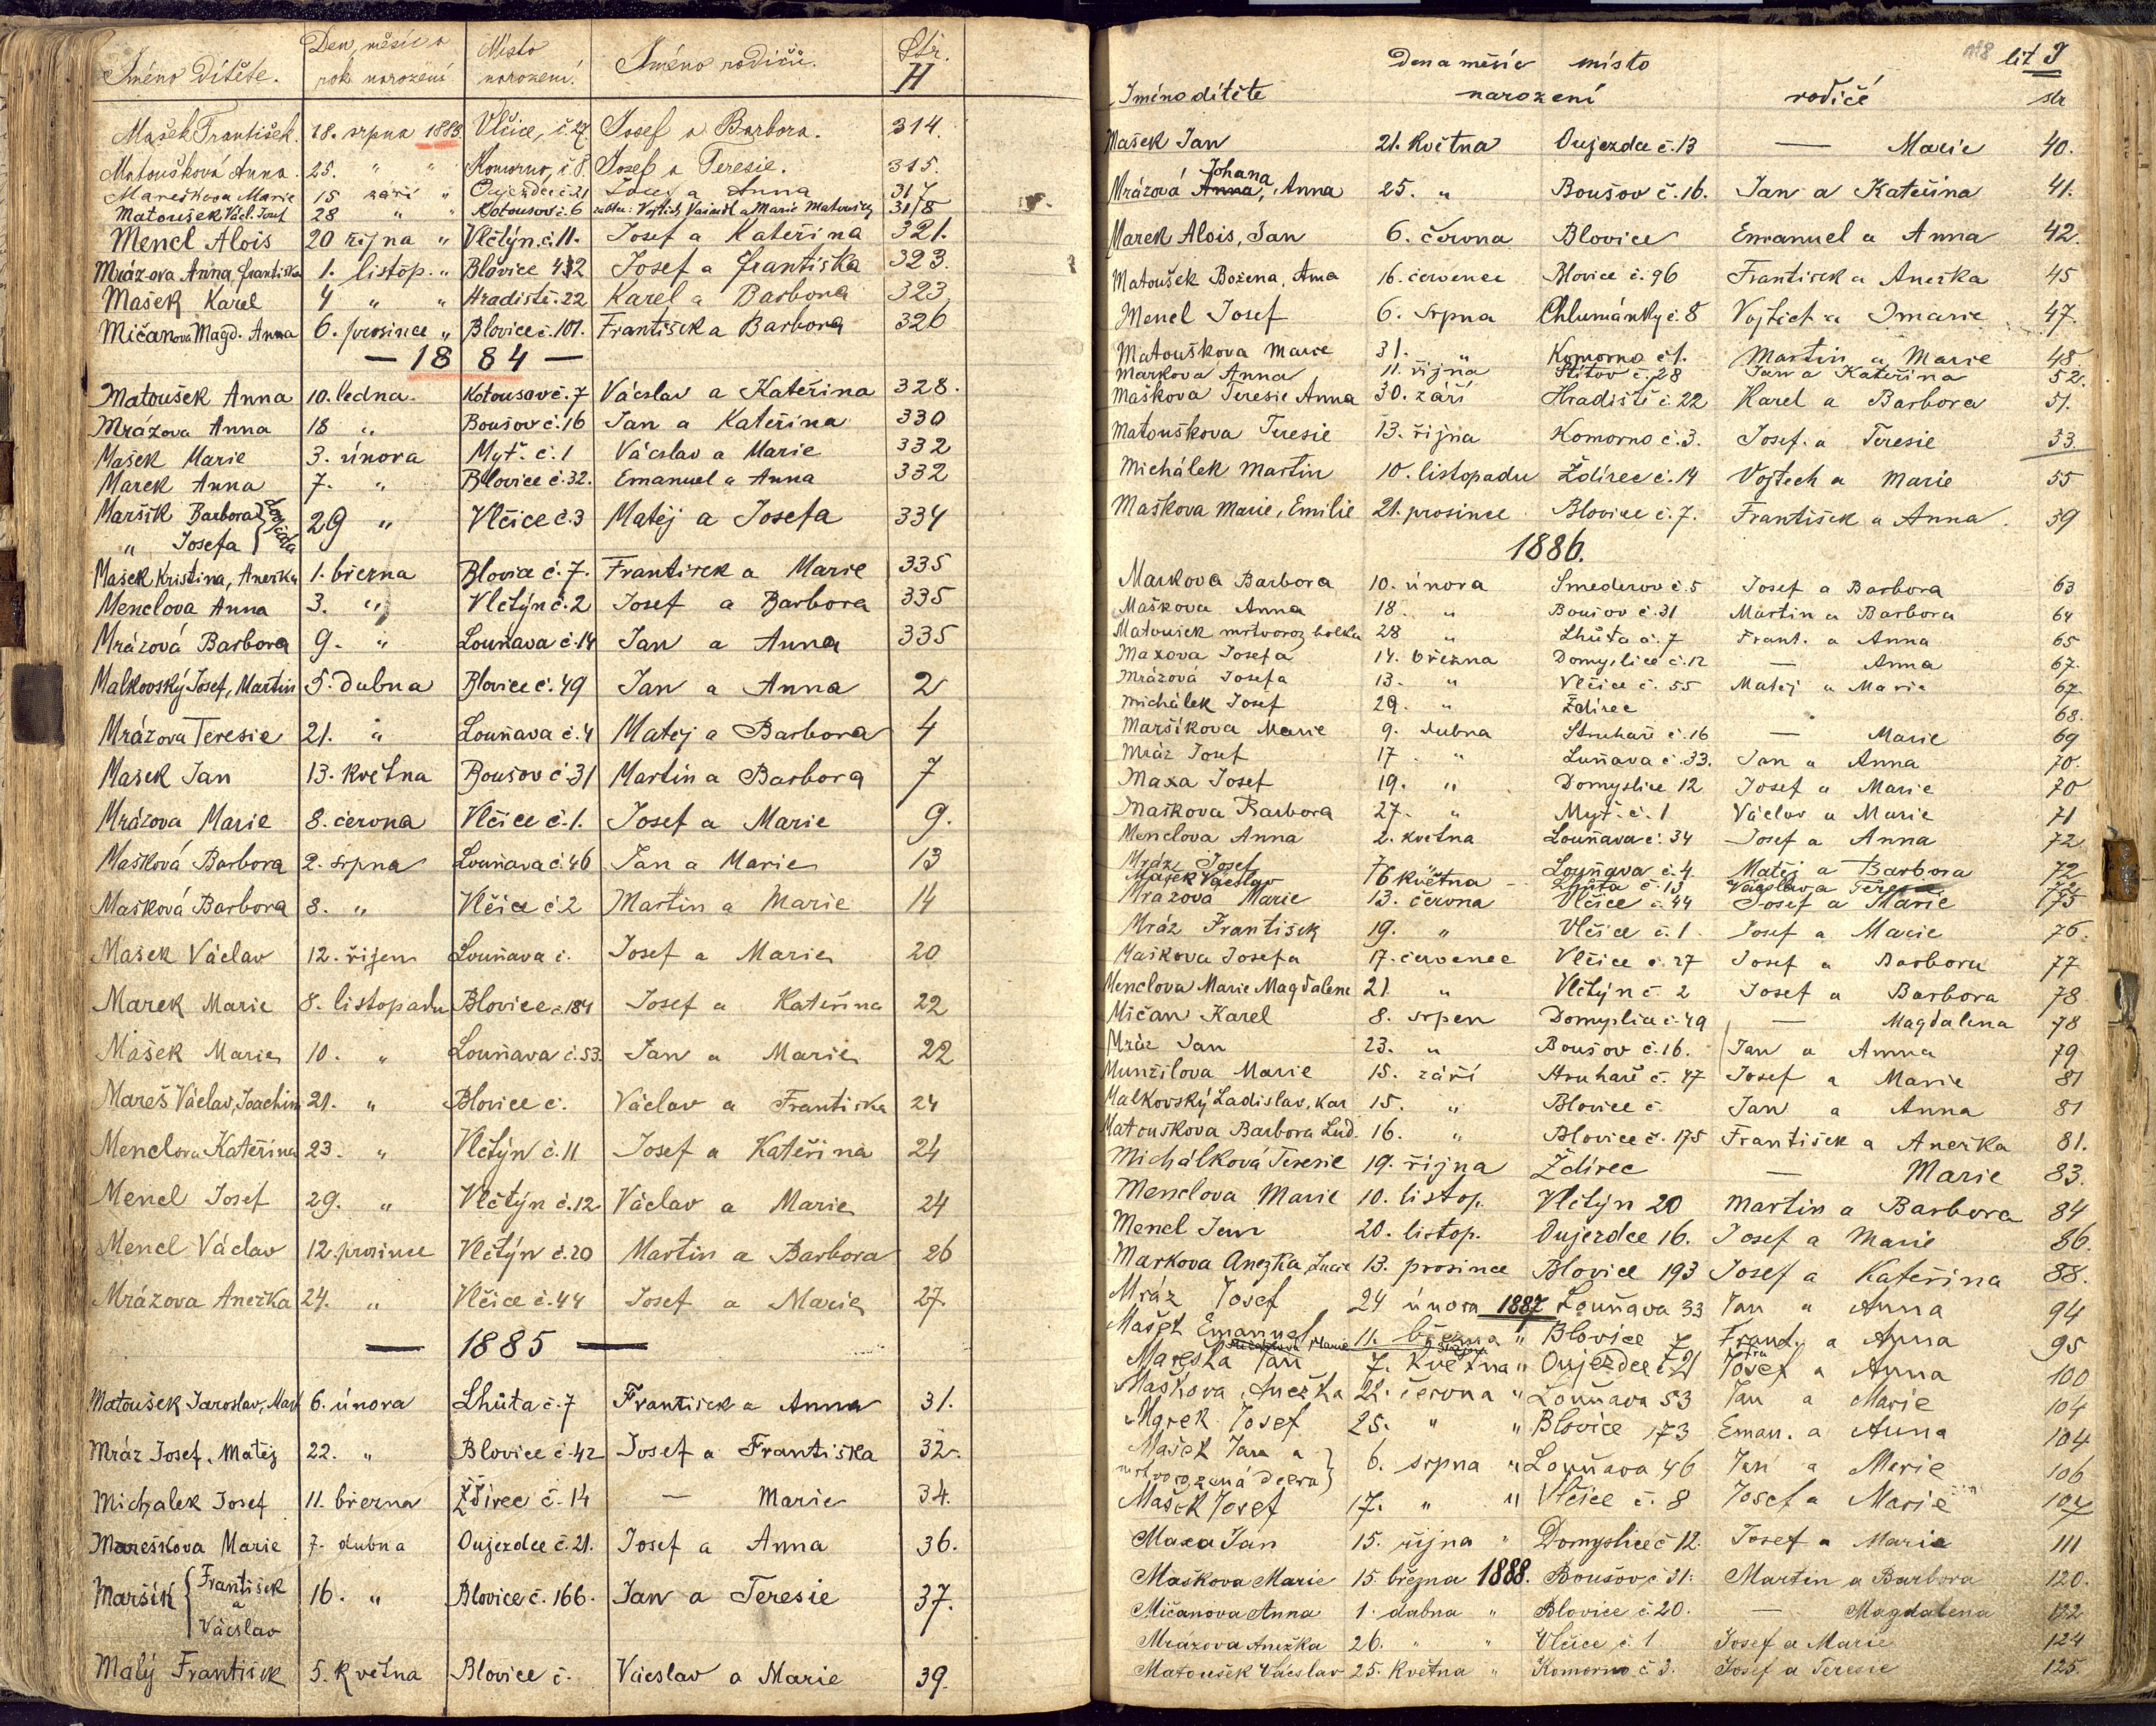 Jméno Dítěte. Den, měsíc a rok narození Místo narození. Jméno rodičů. Str. H
Mašek František. 18. srpna 1883 Vlčice, č. 27. Josef a Barbora. 314.
Matoušková Anna. 25. " " Komorno, č. 8. Josef a Teresie. 315.
Mareškova Marie 15 září " Oujezdec č. 21 Josef a Anna 317
Matoušek Václ. Josef 28 " " Kotousov č. 6 318
Mencl Alois 20 října " Vlčtýn. č. 11. Josef a Kateřina 321.
Mrázova Anna, Františka 1. listop. " Blovice Josef a Františka 323.
Mašek Karel 4 " " Hradiště. 22 Karel a Barbora 323
Mičanova Magd. Anna 6. prosince " Blovice č. 101. František a Barbora 326
— 1884 —
Matoušek Anna 10. ledna. Kotousov č. 7 Václav a Kateřina 328.
Mrázova Anna 18 " Boušov č. 16 Jan a Kateřina 330
Mašek Marie 3. února Myť. č. 1 Václav a Marie 332
Marek Anna 7. " Blovice č. 32. Emanuel a Anna 332
Maršík Barbora } dvojčata 29 " Vlčice č. 3 Matěj a Josefa 334
" Josefa
Mašek Kristina, Anežka 1. března Blovice č. 7. František a Marie 335
Menclova Anna 3. " Vlčtýn č. 2 Josef a Barbora 335
Mrázová Barbora 9. " Louňava č. 14 Jan a Anna 335
Malkovský Josef, Martin 5. dubna Blovice č. 49 Jan a Anna 2
Mrázova Teresie 21. " Louňava č. 4 Matěj a Barbora 4
Mašek Jan 13. května Boušov č. 31 Martin a Barbora 7
Mrázova Marie 8. června Vlčice č. 1. Josef a Marie 9.
Mašková Barbora 2. srpna Louňava č. 46 Jan a Marie 13
Mašková Barbora 8. " Vlčice č. 2 Martin a Marie 14
Mašek Václav 12. říjen Louňava č. Josef a Marie 20
Marek Marie 8. listopadu Blovice č. 184 Josef a Kateřina 22
Mašek Marie 10. " Louňava č. 53. Jan a Marie 22
Mareš Václav, Joachim 21. " Blovice č. Václav a Františka 24
Menclova Kateřina 23. " Vlčtýn č. 11 Josef a Kateřina 24
Mencl Josef 29. " Vlčtýn č. 12 Václav a Marie 24
Mencl Václav 12. prosince Vlčtýn č. 20 Martin a Barbora 26
Mrázova Anežka 24. " Vlčice č. 44 Josef a Marie 27.
— 1885 —
Matoušek Jaroslav, Mat 6. února Lhůta č. 7 František a Anna 31.
Mráz Josef, Matěj 22. " Blovice č. 42 Josef a Františka 32.
Michalek Josef 11. března Ždírec č. 14 — Marie 34.
Mareškova Marie 7. dubna Oujezdec č. 21. Josef a Anna 36.
Maršík { František a Václav 16. " Blovice č. 166. Jan a Teresie 37.
Malý František 5. května Blovice č. Václav a Marie 39.
118 lit J
Jméno dítěte Den a měsíc narození místo rodiče str
Mašek Jan 21. května Oujezdce č. 13 — Marie 40.
Johana
Mrázová Anna, Anna 25. " Boušov č. 16. Jan a Kateřina 41.
Marek Alois, Jan 6. června Blovice Emanuel a Anna 42.
Matoušek Božena, Anna 16. července Blovice č. 96 František a Anežka 45
Mencl Josef 6. srpna Chlumánky č. 8 Vojtěch a Marie 47.
Matouškova Marie 31. " Komorno č 1. Martin a Marie 48
Markova Anna 11. října Štítov č. 28 Jan a Kateřina 52.
Maškova Teresie Anna 30. září Hradiště č. 22 Karel a Barbora 51.
Matouškova Teresie 13. října Komorno č. 3. Josef a Teresie 53
Michálek Martin 10. listopadu Ždírec č. 14 Vojtech a Marie 55
Maškova Marie, Emilie 21. prosince Blovice č. 7. František a Anna. 39
1886.
Markova Barbora 10. února Smederov č. 5 Josef a Barbora 63
Maškova Anna 18. " Boušov č. 31 Martin a Barbora 64
Matoušek mrtvoroz. holka 28 " Lhůta č. 7 Frant. a Anna 65
Maxova Josefa 14. března Domyslice č. 12 — Anna 67.
Mrázová Josefa 13. " Vlčice č. 55 Matěj a Marie 67.
Michálek Josef 29. " Ždírec 68.
Maršíkova Marie 9. dubna Struhaře č. 16 — Marie 69
Mráz Josef 17 " Luňava č. 33. Jan a Anna 70.
Maxa Josef 19. " Domyslice 12 Josef a Marie 70
Maškova Barbora 27. " Myť. č. 1 Václav a Marie 71
Menclova Anna 2. května Louňava č. 34 Josef a Anna 72
Mráz Josef Louňava č. 4. Matěj a Barbora 72
Mašek Václav 16 května Lhůta č. 13 Václav a Teresie
Mrázova Marie 13. června Vlčice č. 44 Josef a Marie 75
Mráz František 19. " Vlčice č. 1 Josef a Marie 76.
Maškova Josefa 17. července Vlčice č. 27 Josef a Barbora 77
Menclova Marie Magdalena 21. " Vlčtýn č. 2 Josef a Barbora 78
Mičan Karel 8. srpen Domyslice č. 49 — Magdalena 78
Mráz Jan 23. " Boušov č. 16. Jan a Anna 79
Munzilova Marie 15. září Struhaře č. 47 Josef a Marie 81
Malkovský Ladislav, Kar 15. " Blovice č. Jan a Anna 81
Matouškova Barbora Lud. 16. " Blovice č. 175 František a Anežka 81.
Michálková Teresie 19. října Ždírec — Marie 83.
Menclova Marie 10. listop. Vlčtýn 20 Martin a Barbora 84
Mencl Jan 20. listop. Oujezdce 16. Josef a Marie 86.
Markova Anežka, Lucie 13. prosince Blovice 193 Josef a Kateřina 88.
Mráz Josef 24 února 1887 Louňava 33 Jan a Anna 94
Mašek Emanuel 11. března " Blovice 7 Frant. a Anna 95
Mareška Jan 7. května " Oujezdce č 21 Josef a Anna 100
Maškova Anežka 22. června " Louňava 53 Jan a Marie 104
Marek Josef 25. " " Blovice 173 Eman. a Anna 104
Mašek Jan a
mrtvorozená dcera } 6. srpna " Louňava 46 Jan a Marie 106
Mašek Josef 17. " " Vlčice č. 8 Josef a Marie 107
Maxa Jan 15. října " Domyslice č 12. Josef a Marie 111
Maškova Marie 15. března 1888. Boušov č. 31. Martin a Barbora 120.
Mičanova Anna 1. dubna " Blovice č. 20. — Magdalena 122
Mrázova Anežka 26. " " Vlčice č. 1 Josef a Marie 124
Matoušek Václav 25. května " Komorno č 3. Josef a Teresie 125.